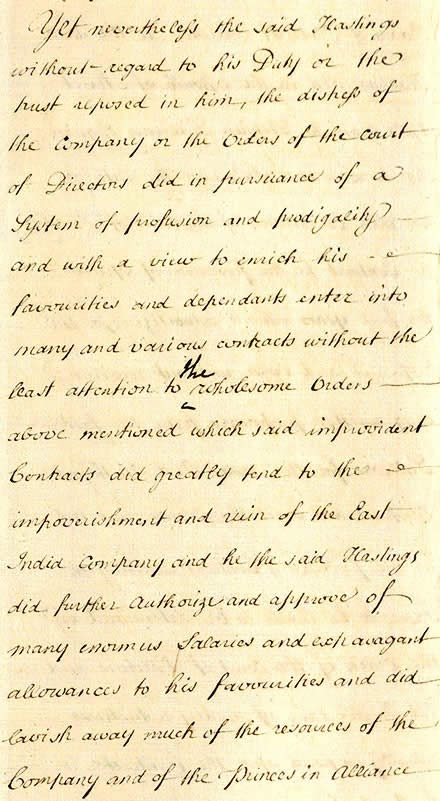 Yet nevertheless the said Hastings
without regard to his Duty or the
trust reposed in him, the distress of
the Company or the Orders of the court
of Directors did in pursuance of a
System of profusion and prodigality
and with a view to enrich his
favourities and dependants enter into
many and various contracts without the
least attention to the wholesome Orders
above mentioned which said improvident
Contracts did greatly tend to the
impoverishment and ruin of the East
India Company and he the said Hastings
did further Authorize and approve of
many enormus Salaries and exhavagant
allowances to his favourities and did
lavish away much of the resources of the
Company and of the Princes in Alliance